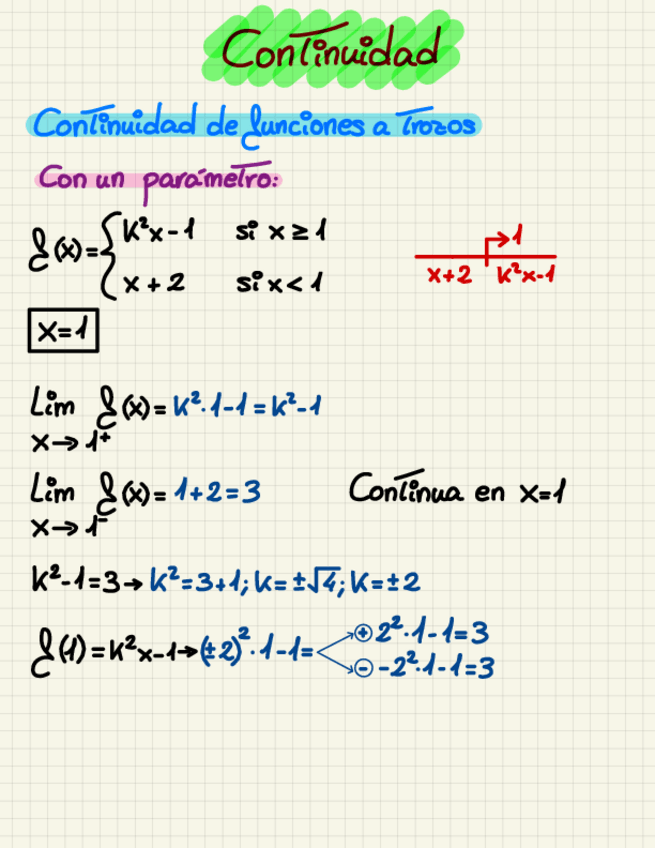 Continuidad
Continuidad de funciones a trozos
Con un parámetro:
f(x)={k²x-1 si x≥1
x+2 si x<1
1
x+2 k²x-1
x=1
Lim f(x)=k²·1-1=k²-1
x→1⁺
Lim f(x)=1+2=3 Contínua en x=1
x→1⁻
k²-1=3→k²=3+1; k=±√4; k=±2
f(1)=k²x-1→(±2)²·1-1=
⊕ 2²·1-1=3
⊖ -2²·1-1=3